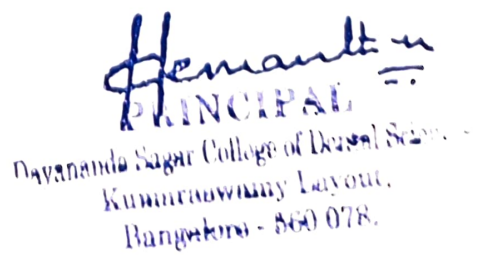 Hemanth M
PRINCIPAL
Dayananda Sagar College of Dental Scien
Kumaraswamy Layout,
Bangalore - 560 078.